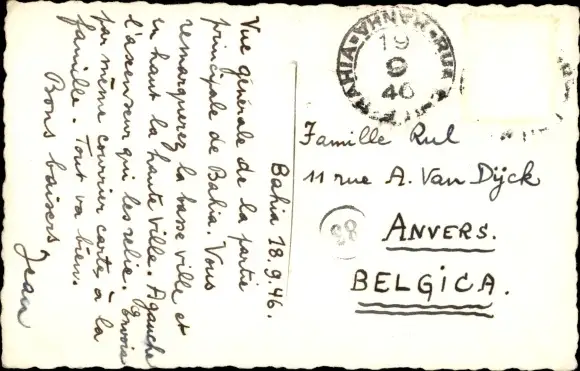 Bahia 18.9.46.
Vue générale de la partie
principale de Bahia. Vous
remarquerez la basse ville et
en haut la haute ville. A gauche
l'ascenseur qui les relie. Envoie
par même courrier carte à la
famille. Tout va bien.
Bons baisers
Jean
19
9
46
Famille Rul
11 rue A. Van Dÿck
ANVERS.
BELGICA.
98